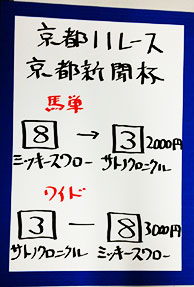 京都11レース
京都新聞杯
馬単
8 → 3 2000円
ミッキースワロー サトノクロニクル
ワイド
3 — 8 3000円
サトノクロニクル ミッキースワロー